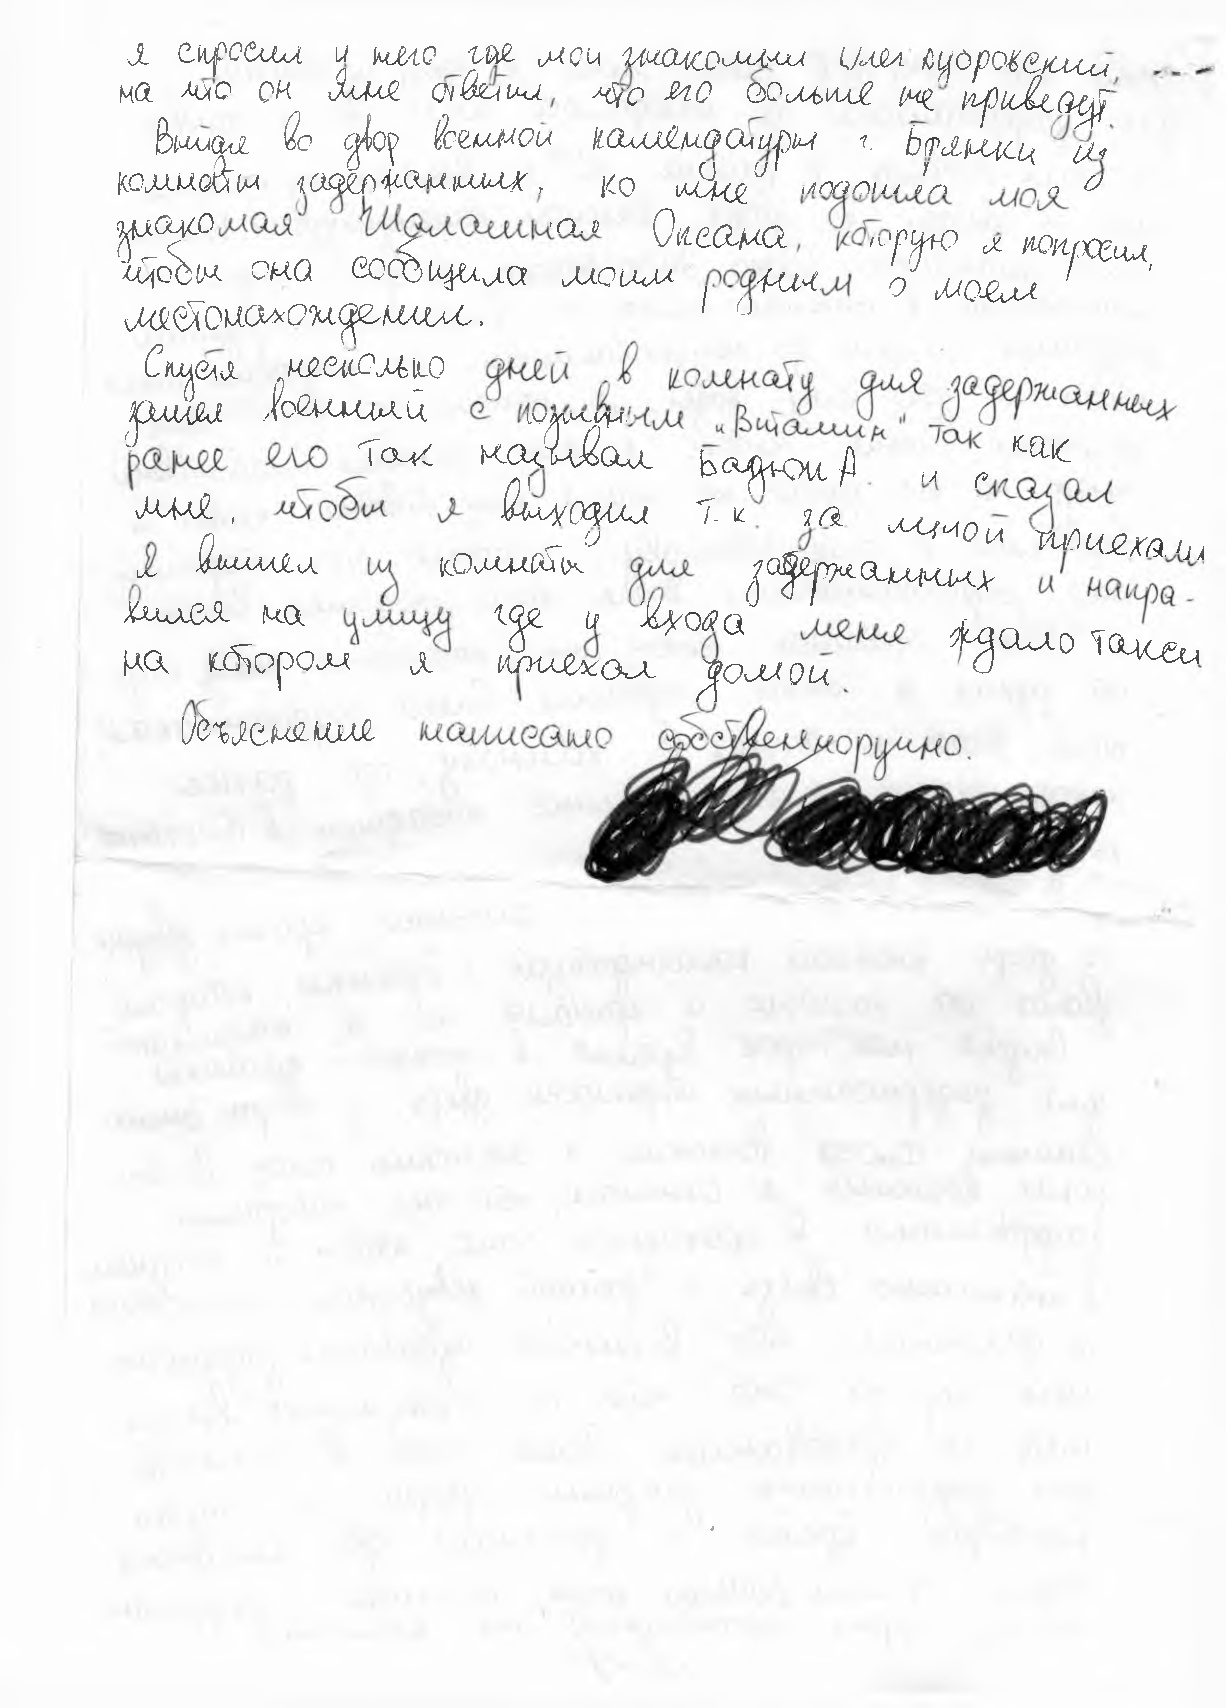 я спросил у него где мой знакомый Олег Дубровский,
на что он мне ответил, что его больше не приведут.
Выйдя во двор военной комендатуры г. Брянки из
комнаты задержанных, ко мне подошла моя
знакомая Шалашная Оксана, которую я попросил,
чтобы она сообщила моим родным о моем
местонахождении.
Спустя несколько дней в комнату для задержанных
зашел военный с позывным "Витамин" так как
ранее его так называл Бадюй А. и сказал
мне, чтобы я выходил т.к. за мной приехали
Я вышел из комнаты для задержанных и напра-
вился на улицу где у входа меня ждало такси
на котором я приехал домой.
Объяснение написано собственноручно.